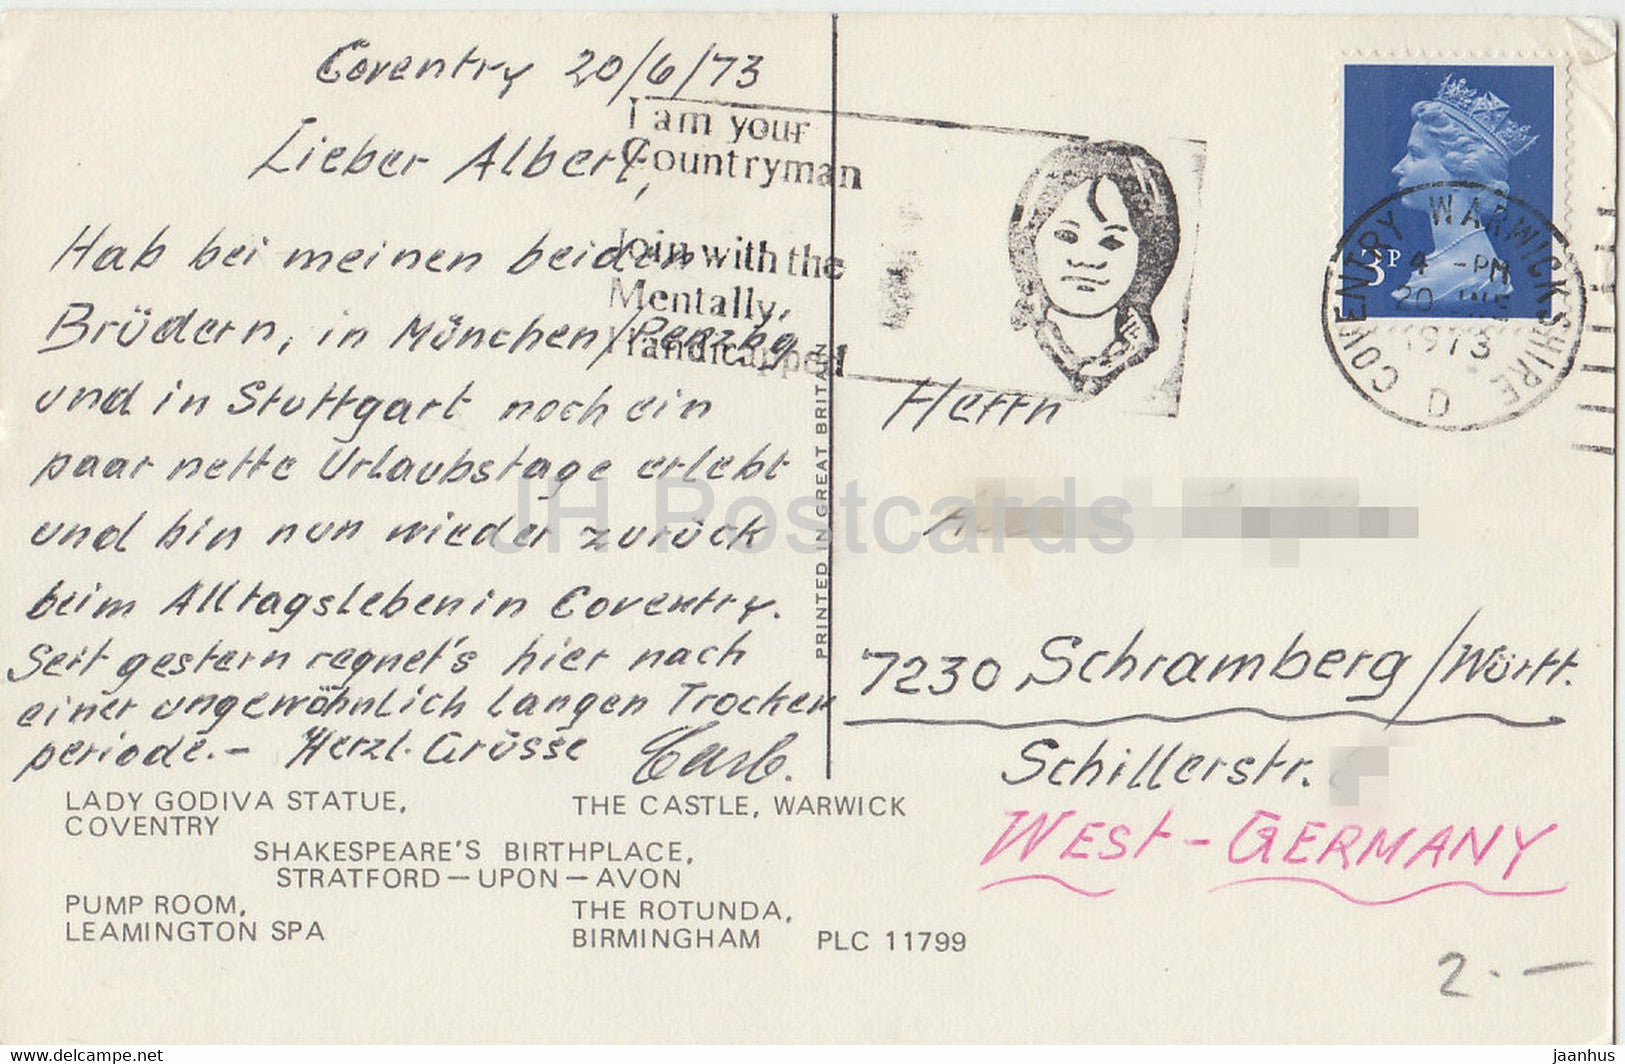 Coventry 20/6/73
Lieber Albert,
Hab bei meinen beiden
Brüdern, in München/Penzbg
und in Stuttgart noch ein
paar nette Urlaubstage erlebt
und bin nun wieder zurück
beim Alltagsleben in Coventry.
Seit gestern regnet's hier nach
einer ungewöhnlich langen Trocken
periode.- Herzl. Grüsse
LADY GODIVA STATUE,
COVENTRY
THE CASTLE, WARWICK
SHAKESPEARE'S BIRTHPLACE,
STRATFORD—UPON—AVON
PUMP ROOM,
LEAMINGTON SPA
THE ROTUNDA,
BIRMINGHAM
PLC 11799
PRINTED IN GREAT BRITAIN
I am your
Countryman
Join with the
Mentally,
Handicapped
3P
COVENTRY WARWICKSHIRE
4 -PM
20 JNE
1973
D
Herrn
7230 Schramberg/Württ.
Schillerstr.
WEST-GERMANY
2.—
JH Postcards
www.delcampe.net
jaanhus